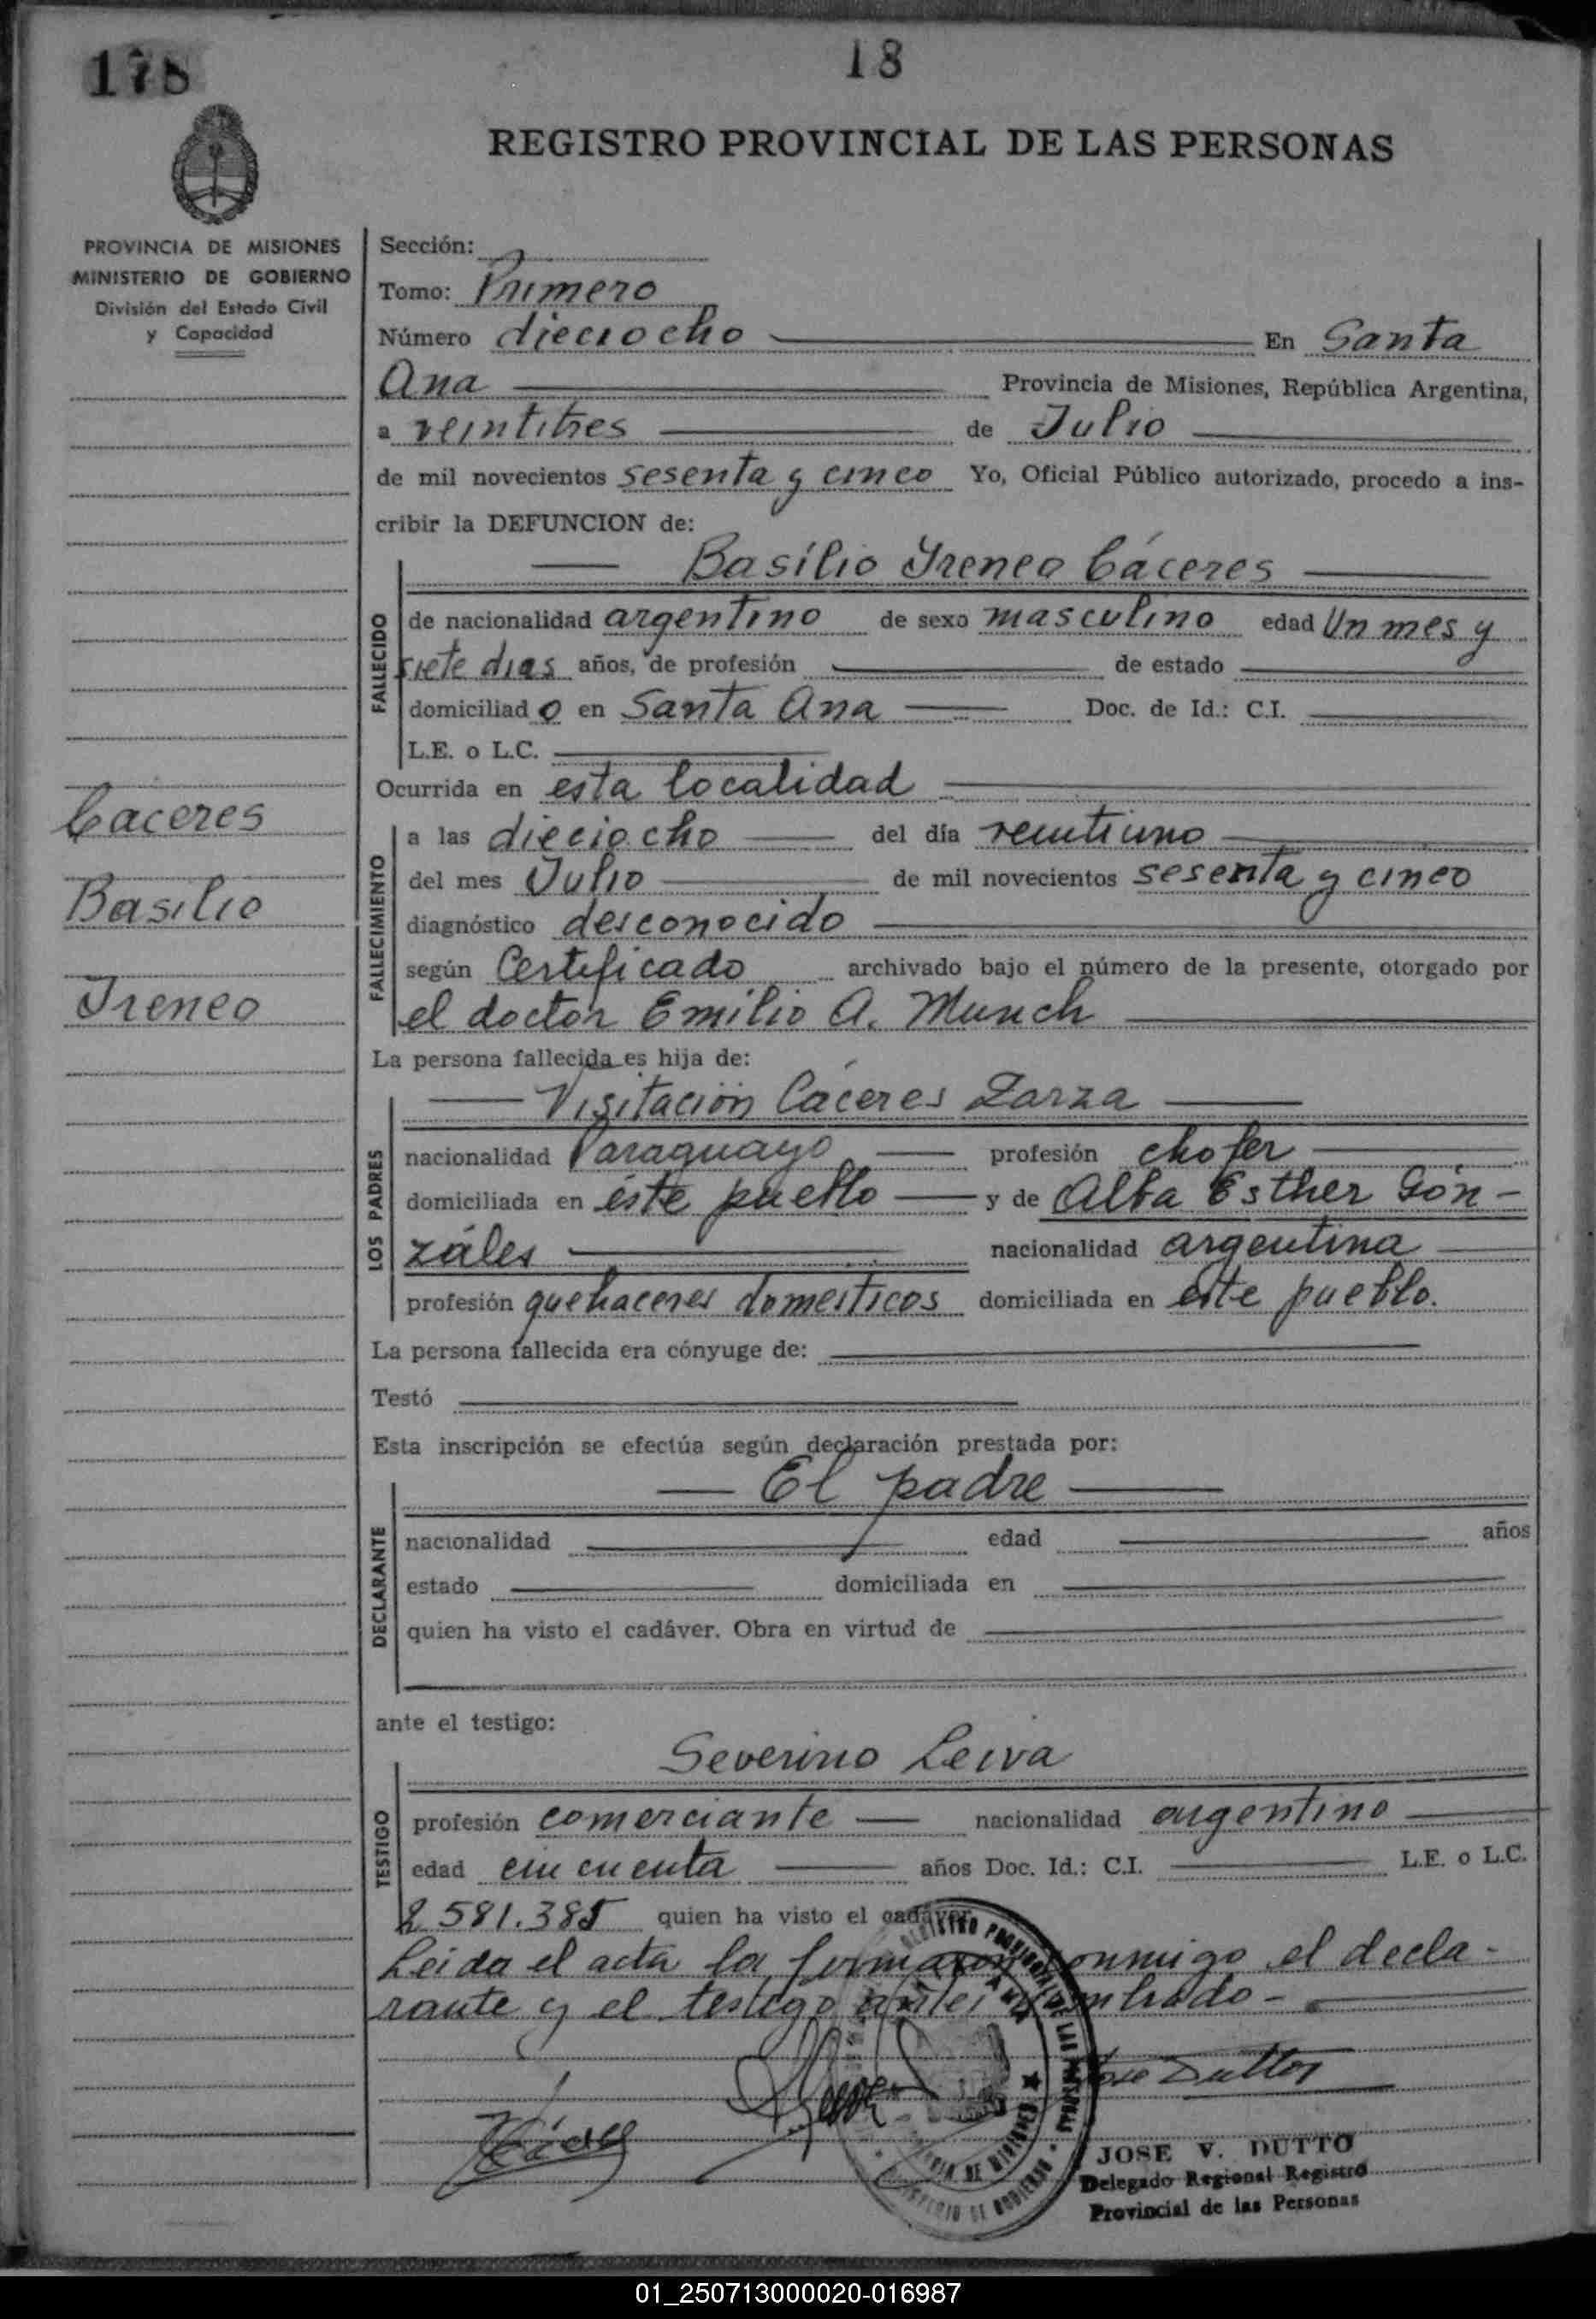 178
18
REGISTRO PROVINCIAL DE LAS PERSONAS
PROVINCIA DE MISIONES
MINISTERIO DE GOBIERNO
División del Estado Civil
y Capacidad
Caceres
Basilio
Ireneo
Sección:
Tomo: Primero
Número dieciocho En Santa
Ana Provincia de Misiones, República Argentina,
a veintitres de Julio
de mil novecientos sesenta y cinco Yo, Oficial Público autorizado, procedo a ins-
cribir la DEFUNCION de:
Basilio Ireneo Cáceres
FALLECIDO
de nacionalidad argentino de sexo masculino edad Un mes y
siete dias años, de profesión de estado
domiciliado en Santa Ana Doc. de Id.: C.I.
L.E. o L.C.
Ocurrida en esta localidad
FALLECIMIENTO
a las dieciocho del día veintiuno
del mes Julio de mil novecientos sesenta y cinco
diagnóstico desconocido
según Certificado archivado bajo el número de la presente, otorgado por
el doctor Emilio A. Munch
La persona fallecida es hija de:
Visitación Cáceres Zarza
LOS PADRES
nacionalidad Paraguayo profesión chofer
domiciliada en éste pueblo y de Alba Esther Gón-
záles nacionalidad argentina
profesión quehaceres domesticos domiciliada en este pueblo.
La persona fallecida era cónyuge de:
Testó
Esta inscripción se efectúa según declaración prestada por:
El padre
DECLARANTE
nacionalidad edad años
estado domiciliada en
quien ha visto el cadáver. Obra en virtud de
ante el testigo:
Severino Leiva
TESTIGO
profesión comerciante nacionalidad argentino
edad cincuenta años Doc. Id.: C.I. L.E. o L.C.
2.581.385 quien ha visto el cadáver.
Leida el acta la firmaron conmigo el decla-
rante y el testigo antes nombrado-
Jose Dutto
JOSE V. DUTTO
Delegado Regional Registro
Provincial de las Personas
01_250713000020-016987